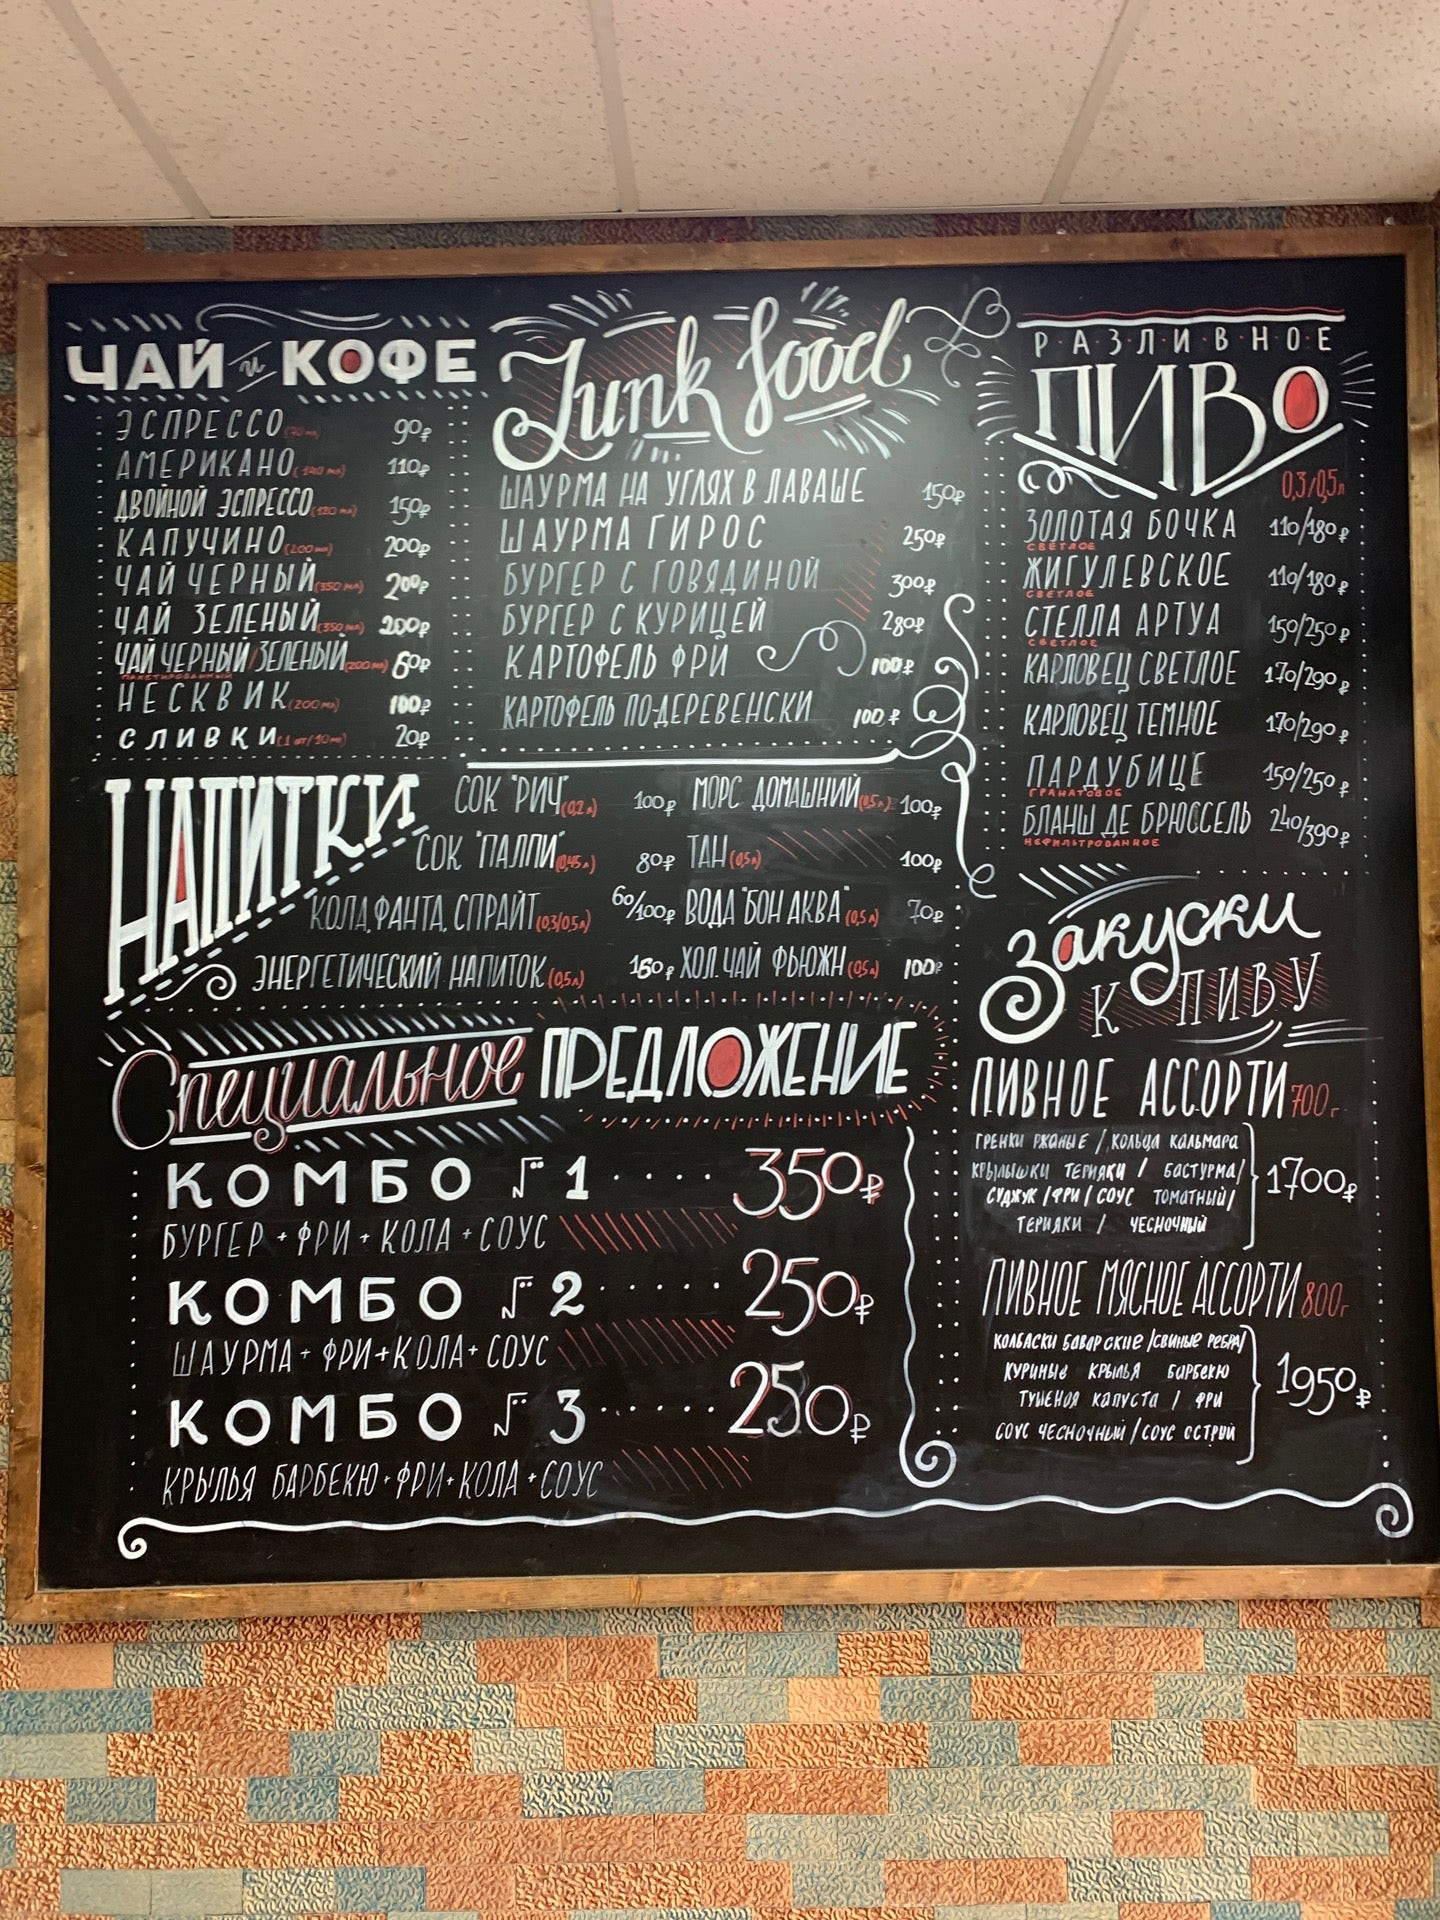 ЧАЙ и КОФЕ
ЭСПРЕССО (70 мл) 90₽
АМЕРИКАНО (140 мл) 110₽
ДВОЙНОЙ ЭСПРЕССО (120 мл) 150₽
КАПУЧИНО (200 мл) 200₽
ЧАЙ ЧЕРНЫЙ (350 мл) 200₽
ЧАЙ ЗЕЛЕНЫЙ (350 мл) 200₽
ЧАЙ ЧЕРНЫЙ/ЗЕЛЕНЫЙ (200 мл) 60₽
ПАКЕТИРОВАННЫЙ
НЕСКВИК (200 мл) 100₽
СЛИВКИ (1 шт/10 мл) 20₽
Junk food
ШАУРМА НА УГЛЯХ В ЛАВАШЕ 150₽
ШАУРМА ГИРОС 250₽
БУРГЕР С ГОВЯДИНОЙ 300₽
БУРГЕР С КУРИЦЕЙ 280₽
КАРТОФЕЛЬ ФРИ 100₽
КАРТОФЕЛЬ ПО-ДЕРЕВЕНСКИ 100₽
Р·А·З·Л·И·В·Н·О·Е
ПИВО
0,3/0,5л
ЗОЛОТАЯ БОЧКА 110/180₽
СВЕТЛОЕ
ЖИГУЛЕВСКОЕ 110/180₽
СВЕТЛОЕ
СТЕЛЛА АРТУА 150/250₽
СВЕТЛОЕ
КАРЛОВЕЦ СВЕТЛОЕ 170/290₽
КАРЛОВЕЦ ТЕМНОЕ 170/290₽
ПАРДУБИЦЕ 150/250₽
ГРАНАТОВОЕ
БЛАНШ ДЕ БРЮССЕЛЬ 240/390₽
НЕФИЛЬТРОВАННОЕ
НАПИТКИ
СОК "РИЧ" (0,2 л) 100₽ МОРС ДОМАШНИЙ (0,5 л) 100₽
СОК "ПАЛПИ" (0,45 л) 80₽ ТАН (0,5 л) 100₽
КОЛА, ФАНТА, СПРАЙТ (0,3/0,5 л) 60/100₽ ВОДА "БОН АКВА" (0,5 л) 70₽
ЭНЕРГЕТИЧЕСКИЙ НАПИТОК (0,5 л) 160₽ ХОЛ. ЧАЙ ФЬЮЖН (0,5 л) 100₽
Специальное ПРЕДЛОЖЕНИЕ
КОМБО № 1 ····· 350₽
БУРГЕР + ФРИ + КОЛА + СОУС
КОМБО № 2 ······ 250₽
ШАУРМА + ФРИ + КОЛА + СОУС
КОМБО № 3 ······ 250₽
КРЫЛЬЯ БАРБЕКЮ + ФРИ + КОЛА + СОУС
Закуски
К ПИВУ
ПИВНОЕ АССОРТИ 700г
ГРЕНКИ РЖАНЫЕ / КОЛЬЦА КАЛЬМАРА
КРЫЛЫШКИ ТЕРИЯКИ / БАСТУРМА/
СУДЖУК / ФРИ / СОУС ТОМАТНЫЙ/
ТЕРИЯКИ / ЧЕСНОЧНЫЙ
1700₽
ПИВНОЕ МЯСНОЕ АССОРТИ 800г
КОЛБАСКИ БАВАРСКИЕ /СВИНЫЕ РЕБРА/
КУРИНЫЕ КРЫЛЬЯ БАРБЕКЮ
ТУШЕНАЯ КАПУСТА / ФРИ
СОУС ЧЕСНОЧНЫЙ / СОУС ОСТРЫЙ
1950₽